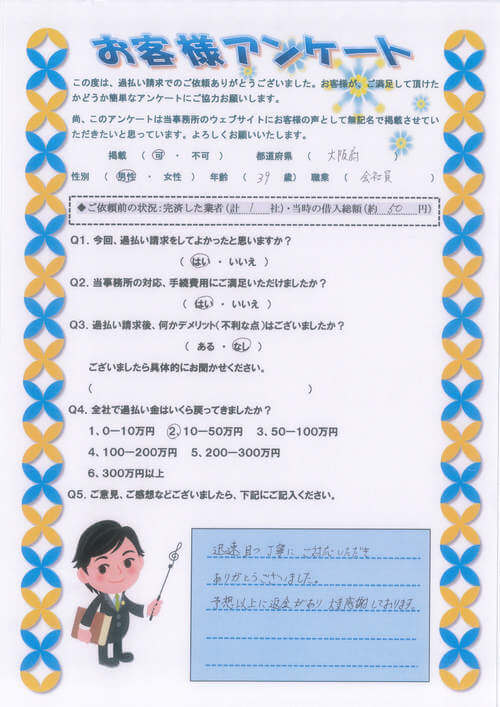 お客様アンケート
この度は、過払い請求でのご依頼ありがとうございました。お客様が、ご満足して頂けた
かどうか簡単なアンケートにご協力お願いします。
尚、このアンケートは当事務所のウェブサイトにお客様の声として無記名で掲載させてい
ただきたいと思っています。よろしくお願いいたします。
掲載 ( 可 ・ 不可 ) 都道府県 ( 大阪府 )
性別 ( 男性 ・ 女性 ) 年齢 ( 39 歳) 職業 ( 会社員 )
◆ご依頼前の状況:完済した業者(計 1 社)・当時の借入総額(約 50 円)
Q1. 今回、過払い請求をしてよかったと思いますか?
( はい ・ いいえ )
Q2. 当事務所の対応、手続費用にご満足いただけましたか?
( はい ・ いいえ )
Q3. 過払い請求後、何かデメリット(不利な点)はございましたか?
( ある ・ なし )
ございましたら具体的にお聞かせください。
( )
Q4. 全社で過払い金はいくら戻ってきましたか?
1、0-10万円 2、10-50万円 3、50-100万円
4、100-200万円 5、200-300万円
6、300万円以上
Q5. ご意見、ご感想などございましたら、下記にご記入ください。
迅速且つ丁寧にご対応いただき
ありがとうございました。
予想以上に返金があり大変感謝しております。